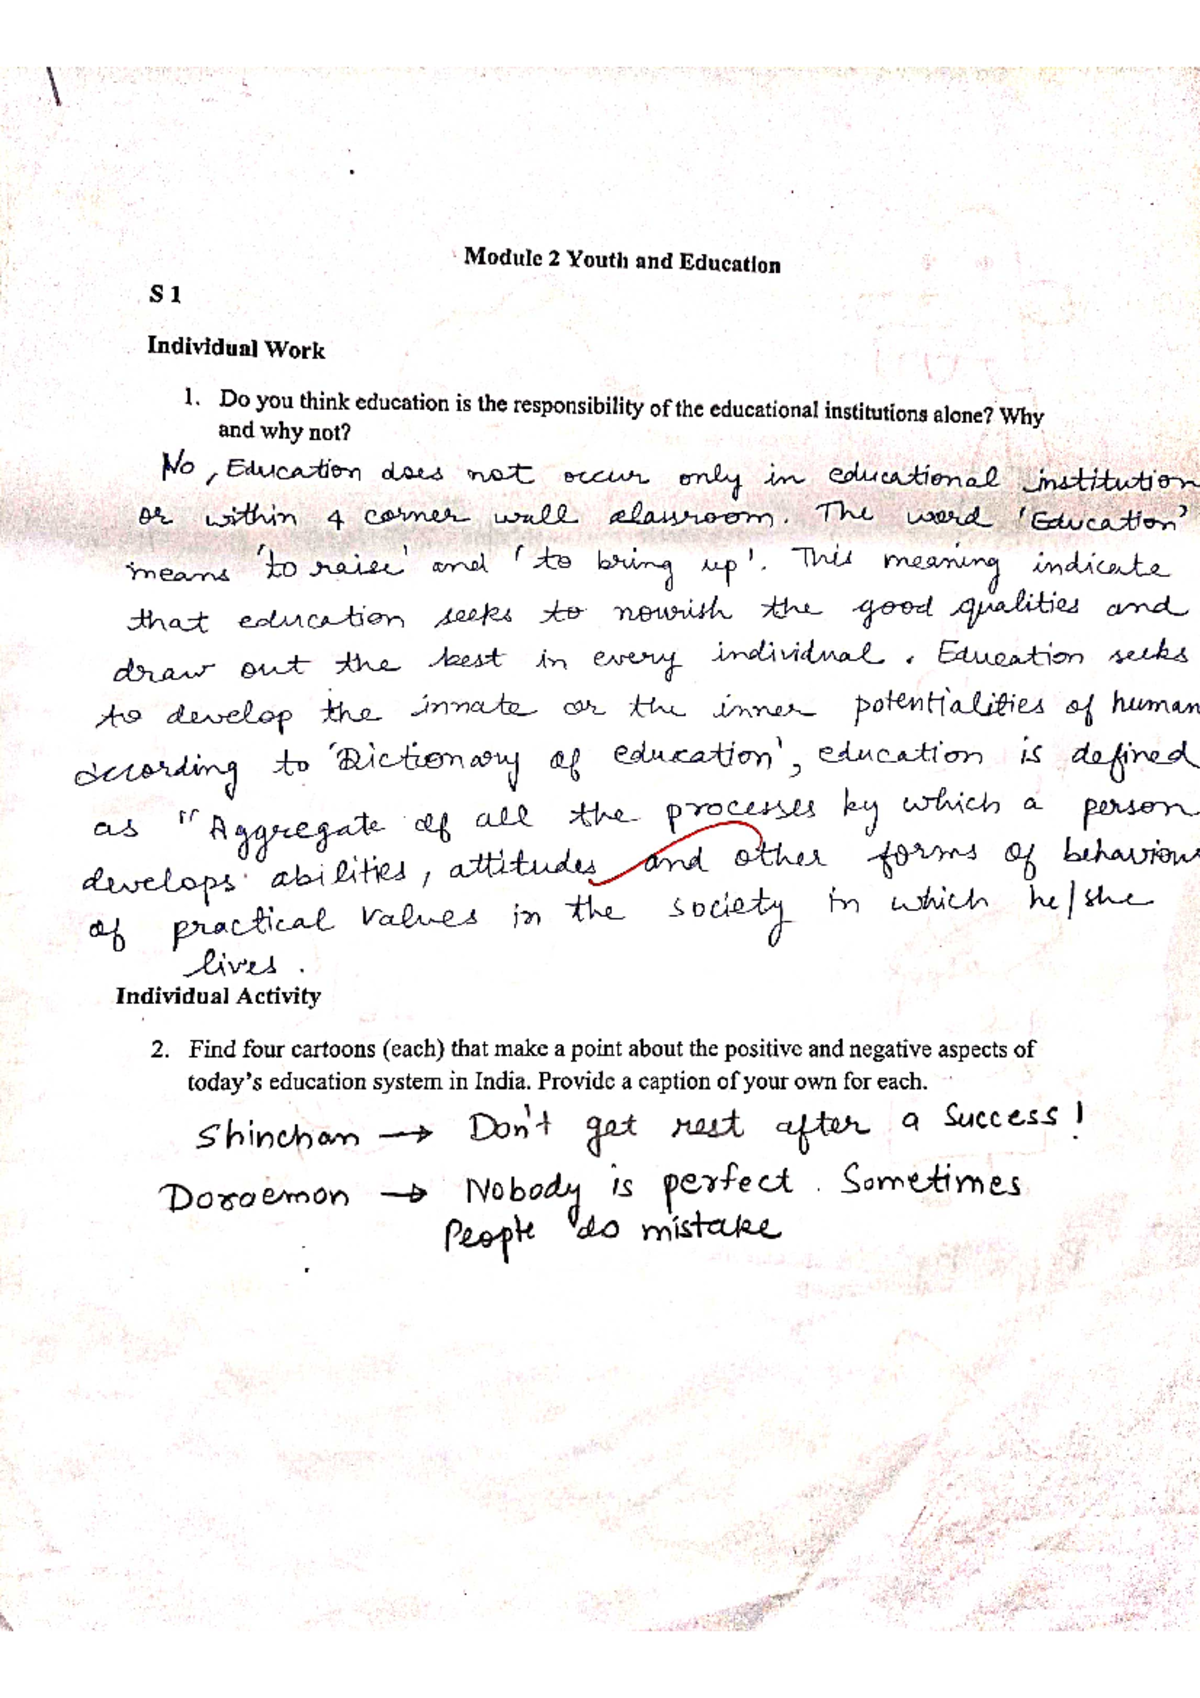 Module 2 Youth and Education
S 1
Individual Work
1. Do you think education is the responsibility of the educational institutions alone? Why
and why not?
No, Education does not occur only in educational institution
or within 4 corner wall classroom. The word 'Education'
means 'to raise' and 'to bring up'. This meaning indicate
that education seeks to nourish the good qualities and
draw out the best in every individual. Education seeks
to develop the innate or the inner potentialities of human
according to 'Dictionary of education', education is defined
as "Aggregate of all the processes by which a person
develops abilities, attitudes and other forms of behaviour
of practical values in the society in which he/she
lives.
Individual Activity
2. Find four cartoons (each) that make a point about the positive and negative aspects of
today's education system in India. Provide a caption of your own for each.
Shinchan → Don't get rest after a success!
Doraemon → Nobody is perfect. Sometimes
People do mistake